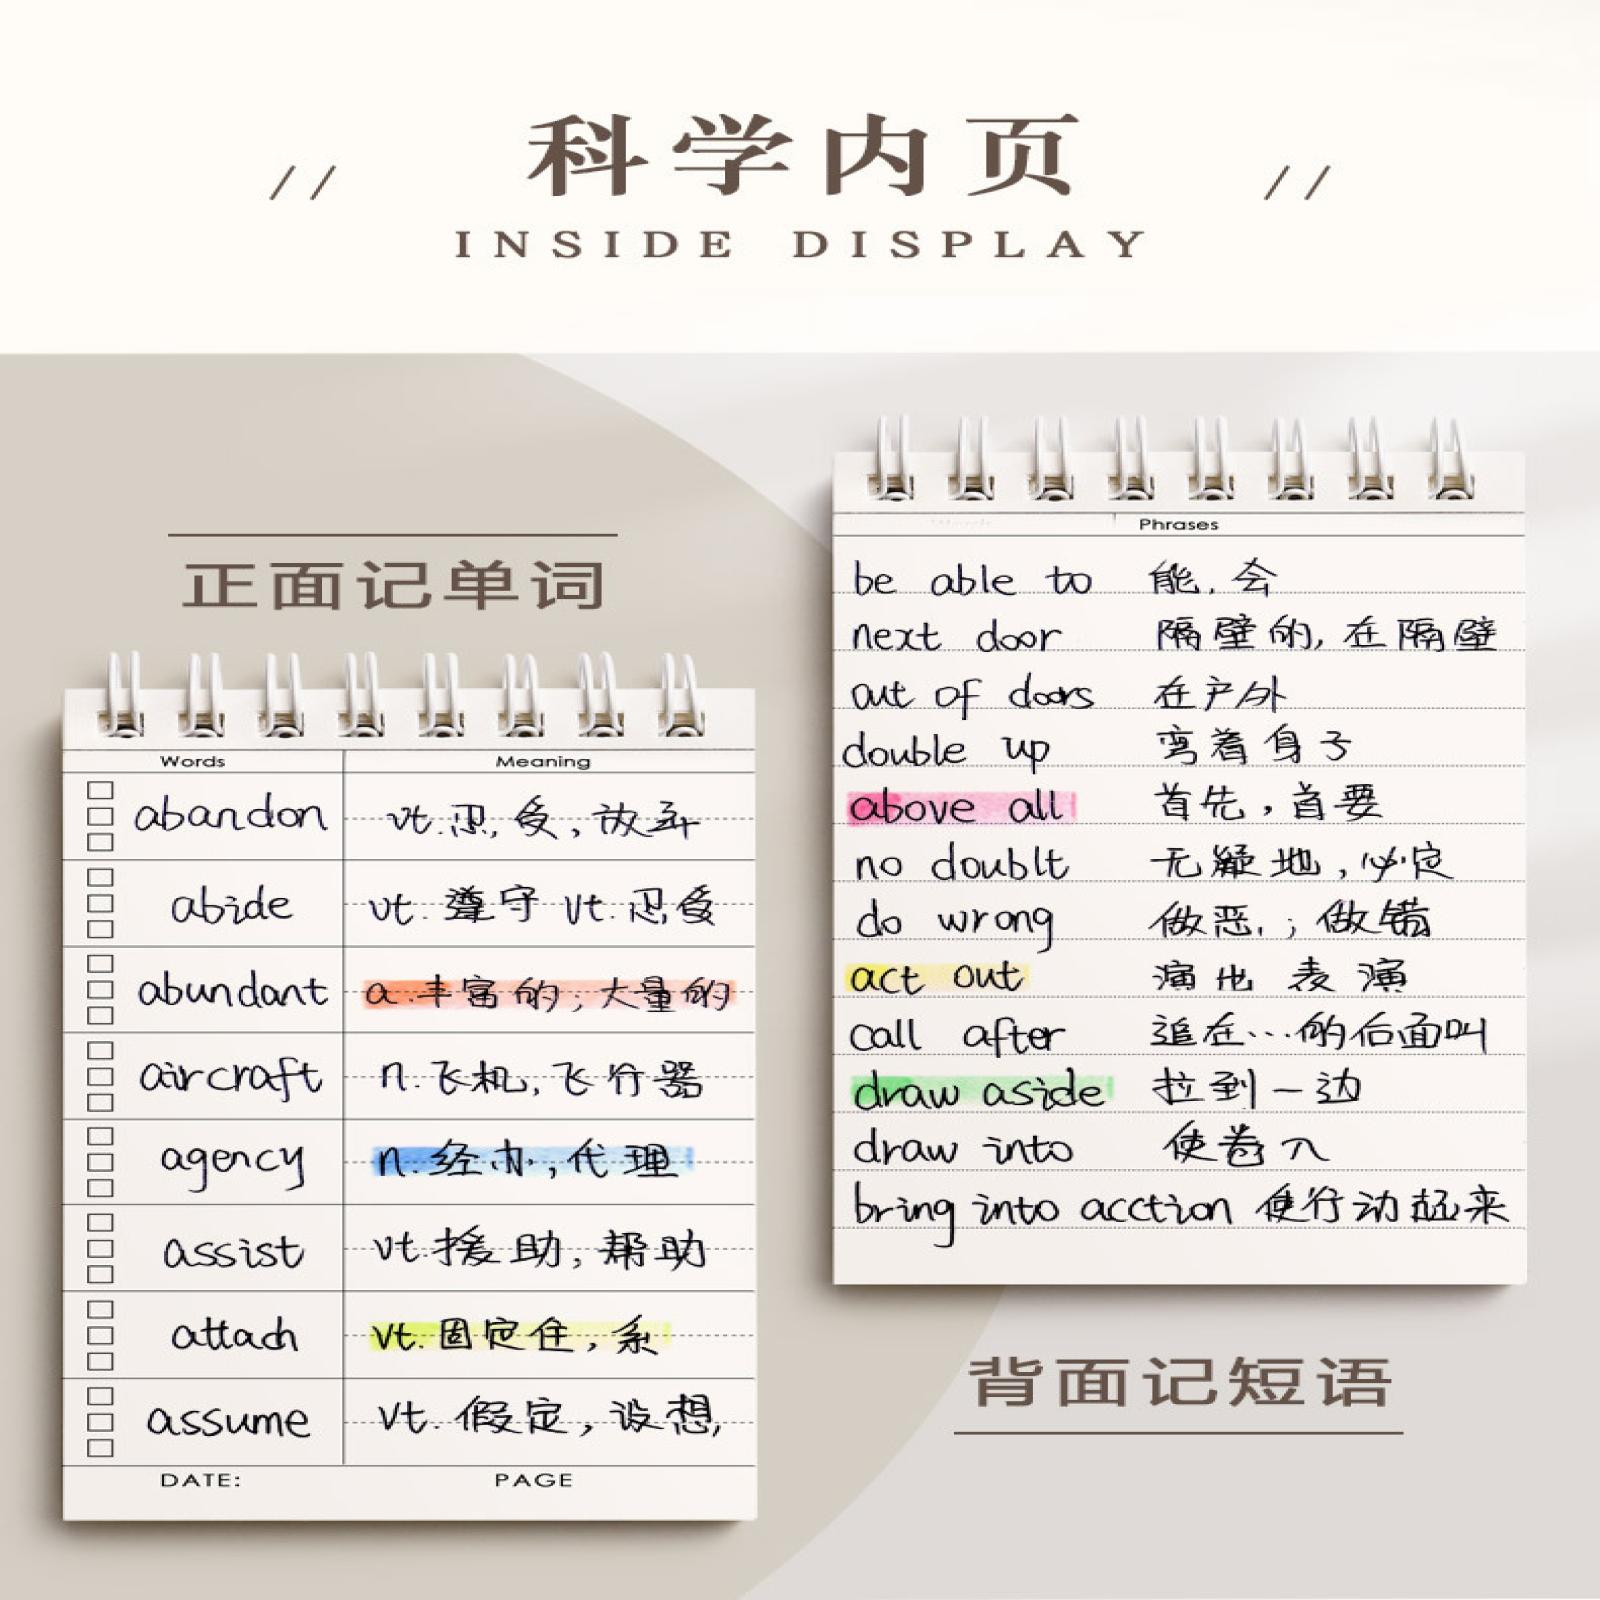 科学内页
INSIDE DISPLAY
正面记单词
Words Meaning
abandon vt.忍受,放弃
abide vt.遵守 vt.忍受
abundant a.丰富的;大量的
aircraft n.飞机,飞行器
agency n.经办,代理
assist vt.援助,帮助
attach vt.固定住,系
assume vt.假定,设想,
DATE: PAGE
Phrases
be able to 能,会
next door 隔壁的,在隔壁
out of doors 在户外
double up 弯着身子
above all 首先,首要
no doublt 无疑地,必定
do wrong 做恶,;做错
act out 演出 表演
call after 追在…的后面叫
draw aside 拉到一边
draw into 使卷入
bring into acction 使行动起来
背面记短语